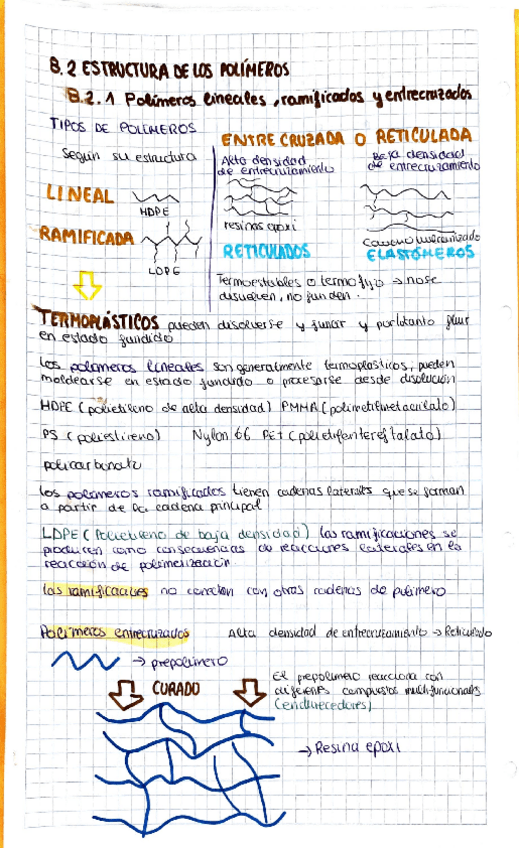 8.2 ESTRUCTURA DE LOS POLÍMEROS
8.2.1 Polímeros lineales, ramificados y entrecruzados
TIPOS DE POLÍMEROS
según su estructura
LINEAL
HDPE
RAMIFICADA
LDPE
ENTRECRUZADA O RETICULADA
Alta densidad
de entrecruzamiento
resinas epoxi
RETICULADOS
Baja densidad
de entrecruzamiento
caucho vulcanizado
ELASTÓMEROS
Termoestables o termofijo → no se
disuelven, no funden.
TERMOPLÁSTICOS pueden disolverse y fundir y por lo tanto fluir
en estado fundido
Los polímeros lineales son generalmente termoplásticos, pueden
moldearse en estado fundido o procesarse desde disolución
HDPE (polietileno de alta densidad) PMMA (polimetilmetacrilato)
PS (poliestireno) Nylon 66 PET (polietilentereftalato)
policarbonato
Los polímeros ramificados tienen cadenas laterales que se forman
a partir de la cadena principal
LDPE (Polietileno de baja densidad) las ramificaciones se
producen como consecuencias de reacciones laterales en la
reacción de polimerización
Las ramificaciones no conectan con otras cadenas de polímero
Polímeros entrecruzados Alta densidad de entrecruzamiento → Reticulado
→ prepolímero
CURADO
El prepolímero reacciona con
diferentes compuestos multifuncionales
(endurecedores)
→ Resina epoxi